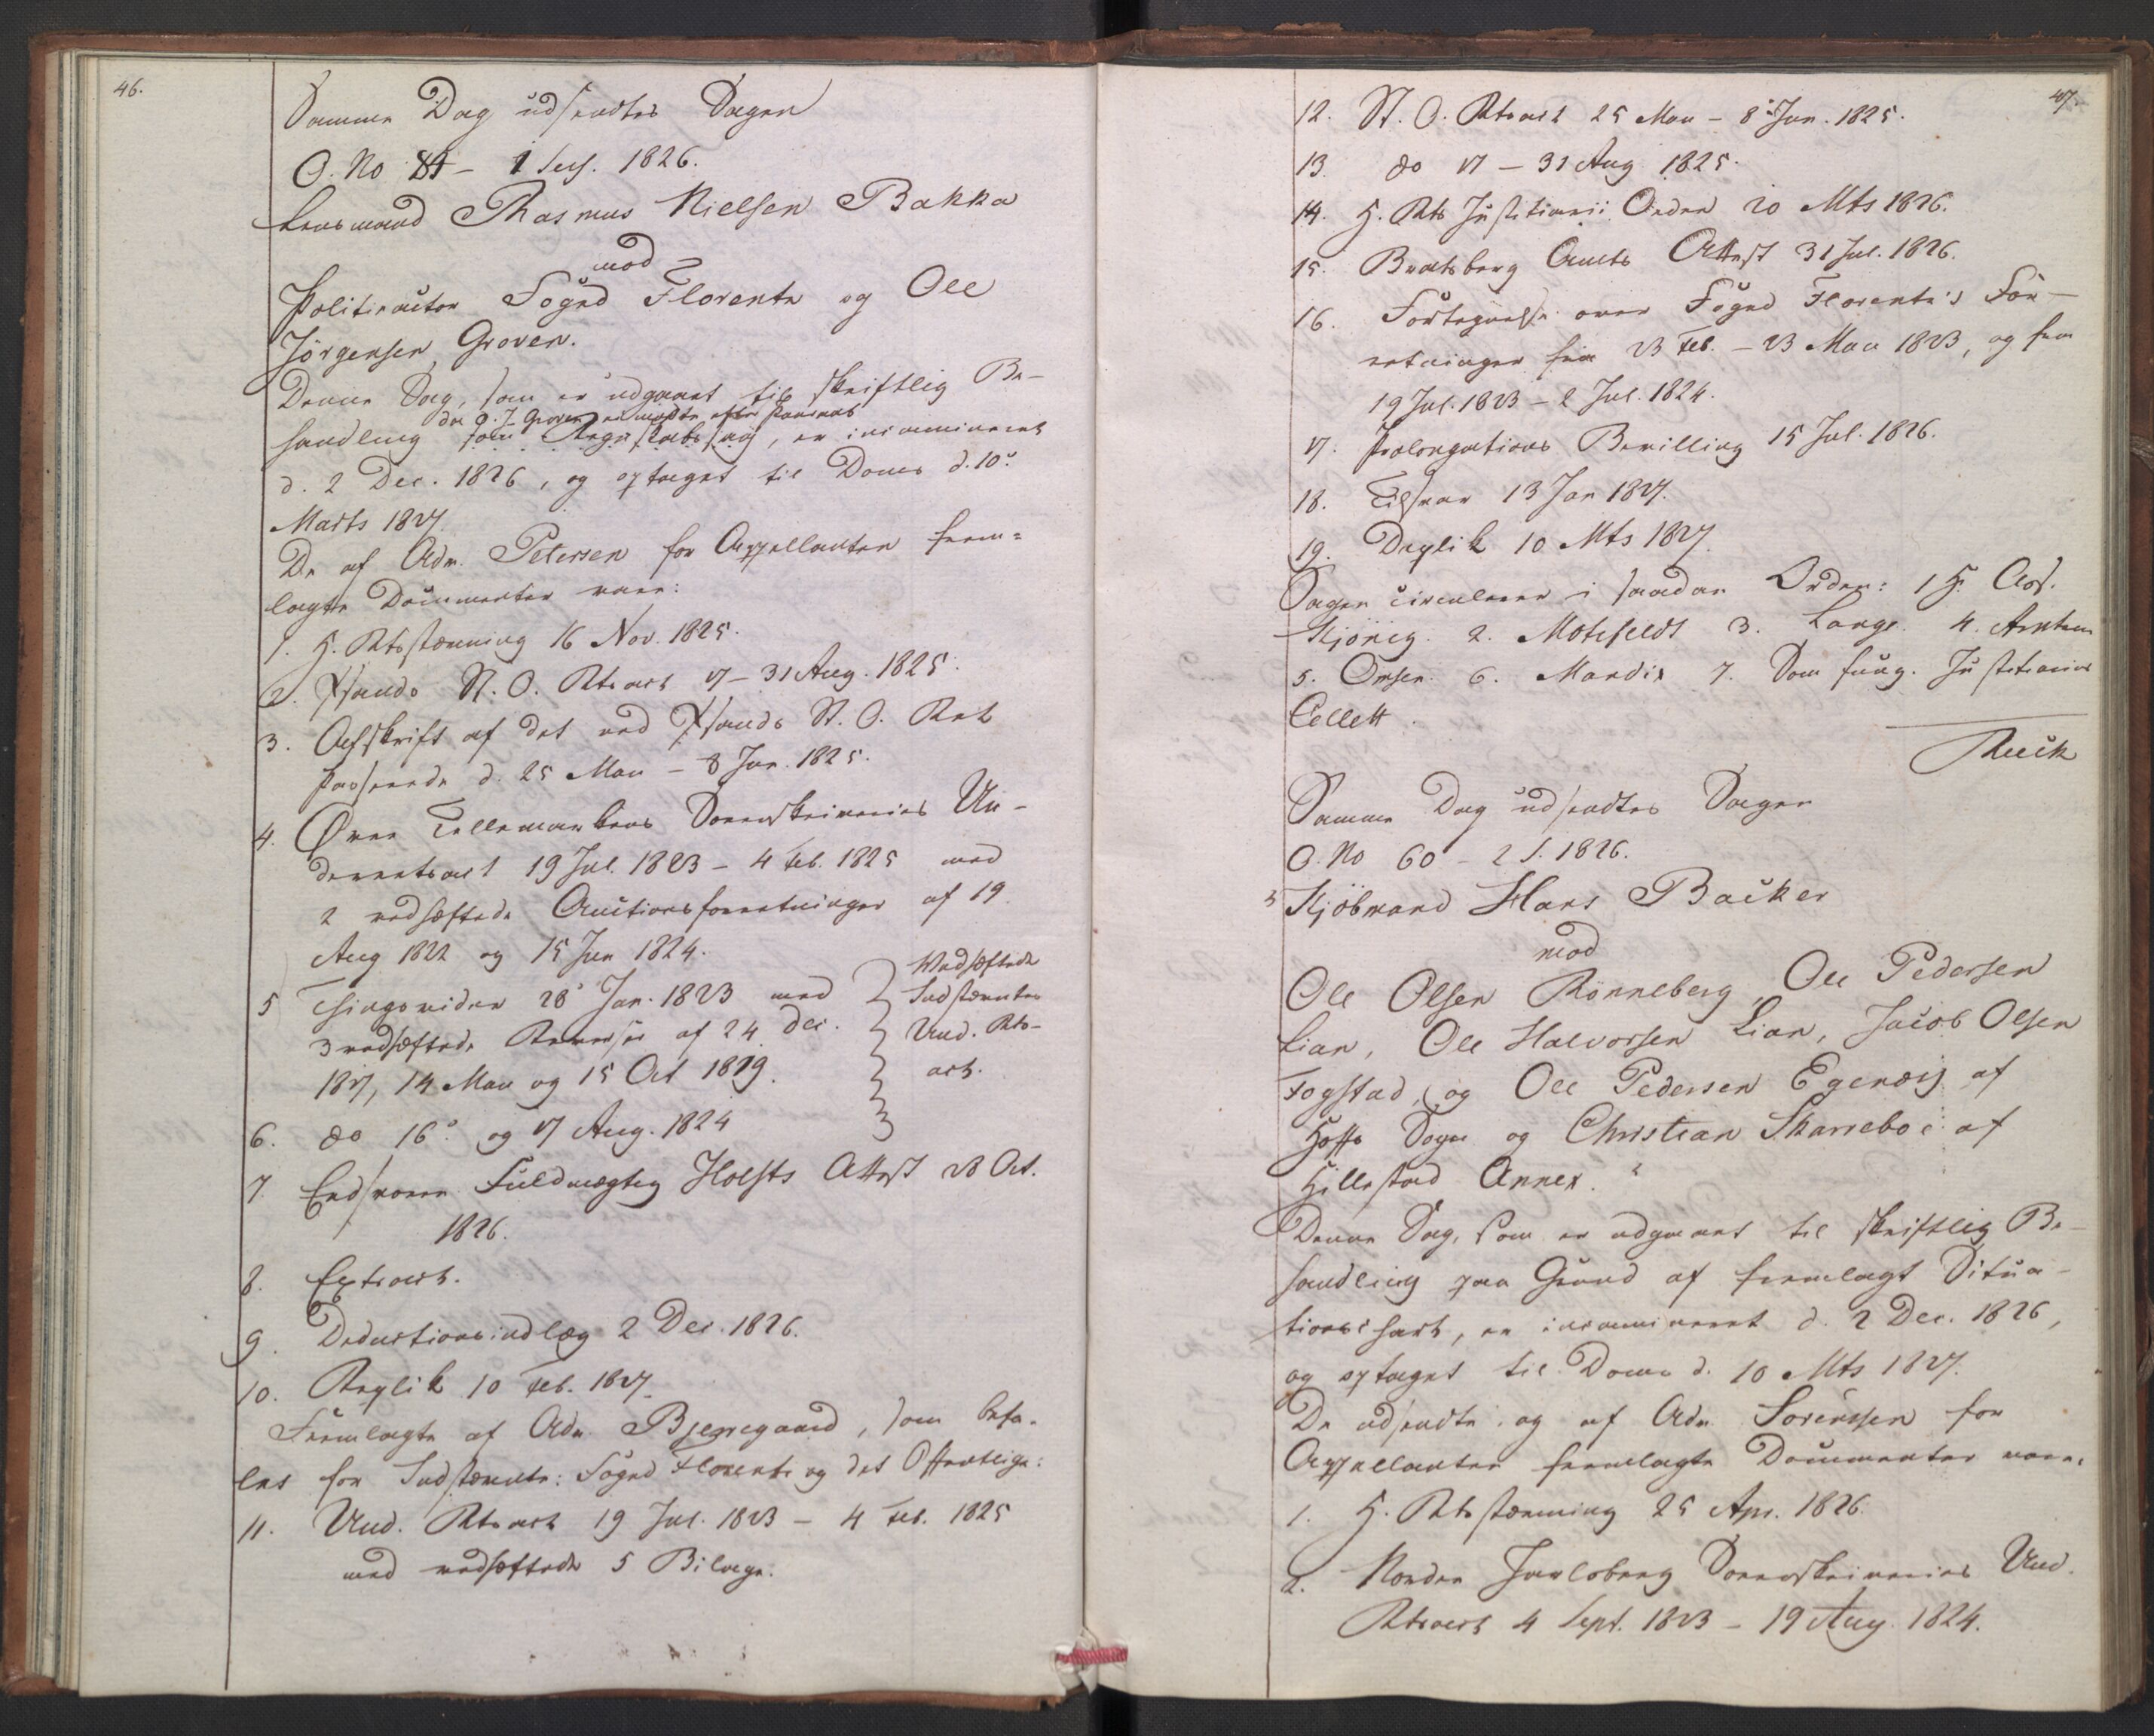 46.
Samme Dag udsendtes Sagen
O. No 84 – 1 Ses. 1826.
Lensmand Rasmus Nielsen Bakka
mod
Politieactor Foged Florentz og Ole
Jörgensen Groven.
Denne Sag, som er udgaaet til skriftlig Be-
da O. J. Groven er mödt efter
handling som Regnskabssag, er incamineret
d. 2 Dec. 1826, og optaget til Doms d. 10de
Marts 1827.
De af Adv. Petersen for Appellanten frem-
lagte Documenter vare:
1. H. Rtsstævning 16 Nov. 1825.
2. Xsands St. O. Rtsact 17–31 Aug. 1825.
3. Afskrift af det ved Xsands St. O. Ret
Passerede d. 25 Mau – 8 Jun. 1825.
4. Övre Tellemarkens Sorenskriveries Un-
derretsact 19 Jul. 1823 – 4 Feb. 1825 med
2 vedhæftede Auctionsforretninger af 19
Aug 1822 og 15 Jun 1824.
5 Thingsvidne 28 Jan. 1823 med
3 vedhæftede Reverser af 24 Dec.
1817, 14 Mau og 15 Oct 1819.
Vedhæftede
Indstævntes
Und. Rts-
act.
6. do 16de og 17 Aug. 1824
7. Edsvoren Fuldmægtig Holsts Attest 28 Oct.
1826.
8. Extract.
9. Deductionsindlæg 2 Dec. 1826.
10. Replik 10 Feb. 1827.
Fremlagte af Adv. Bjerregaard, som befa-
let for Indstævnte: Foged Florentz og det Offentlige:
11. Und. Rtsact 19 Jul. 1823 – 4 Feb. 1825
med vedhæftede 5 Bilage.
47.
12. St. O. Rtsact 25 Mau – 8 Jun. 1825.
13. do 17 – 31 Aug 1825.
14. H. Rts Justitiarii Orden 20 Mts 1826.
15. Bratsberg Amts Attest 31 Jul. 1826.
16. Fortegnelse over Foged Florentz's For-
retninger fra 23 Feb. – 23 Mau 1823, og fra
19 Jul. 1823 – 2 Jul. 1824.
17. Prolongations Bevilling 15 Jul. 1826.
18. Tilsvar 13 Jan 1827.
19. Duplik 10 Mts 1827.
Sagen circulerer i saadan Orden: 1 H. Ass.
Kjönig. 2. Motzfeldt 3. Lange. 4. Arntzen
5. Omsen. 6. Mandix 7. Som fung. Justitiarius
Collett.
Rück
Samme Dag udsendtes Sagen
O. No 60 – 2 S. 1826.
Kjöbmand Hans Backer
mod
Ole Olsen Rönneberg, Ole Pedersen
Lian, Ole Halvorsen Lian, Jacob Olsen
Fogstad, og Ole Pedersen Egenæs af
Hoffs Sogn og Christian Skarrebo af
Hillestad Annex.
Denne Sag, som er udgaaet til skriftlig Be-
handling paa Grund af fremlagt Situa-
tionschart, er incamineret d. 2 Dec. 1826,
og optaget til Doms d. 10 Mts 1827.
De udsendte, og af Adv. Sörenssen for
Appellanten fremlagte Documenter vare:
1. H. Rtsstævning 25 Apr. 1826.
2. Nordre Jarlsberg Sorenskriveries Und.
Rtsact 4 Sept. 1823 – 19 Aug. 1824.